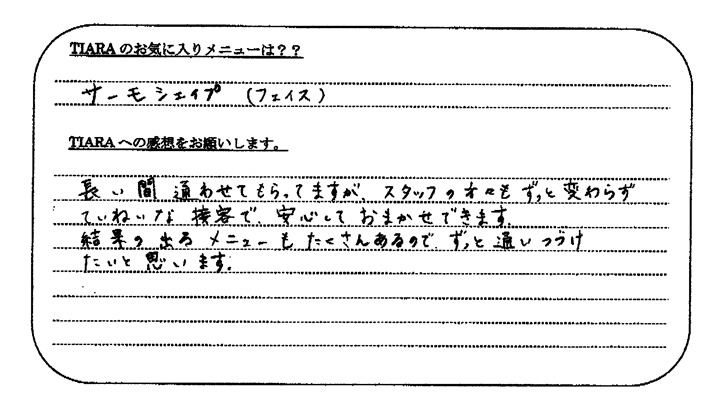 TIARAのお気に入りメニューは??
サーモシェイプ (フェイス)
TIARAへの感想をお願いします。
長い間通わせてもらってますが、スタッフの方々もずっと変わらず
ていねいな接客で、安心しておまかせできます。
結果の出るメニューもたくさんあるので、ずっと通いつづけ
たいと思います。